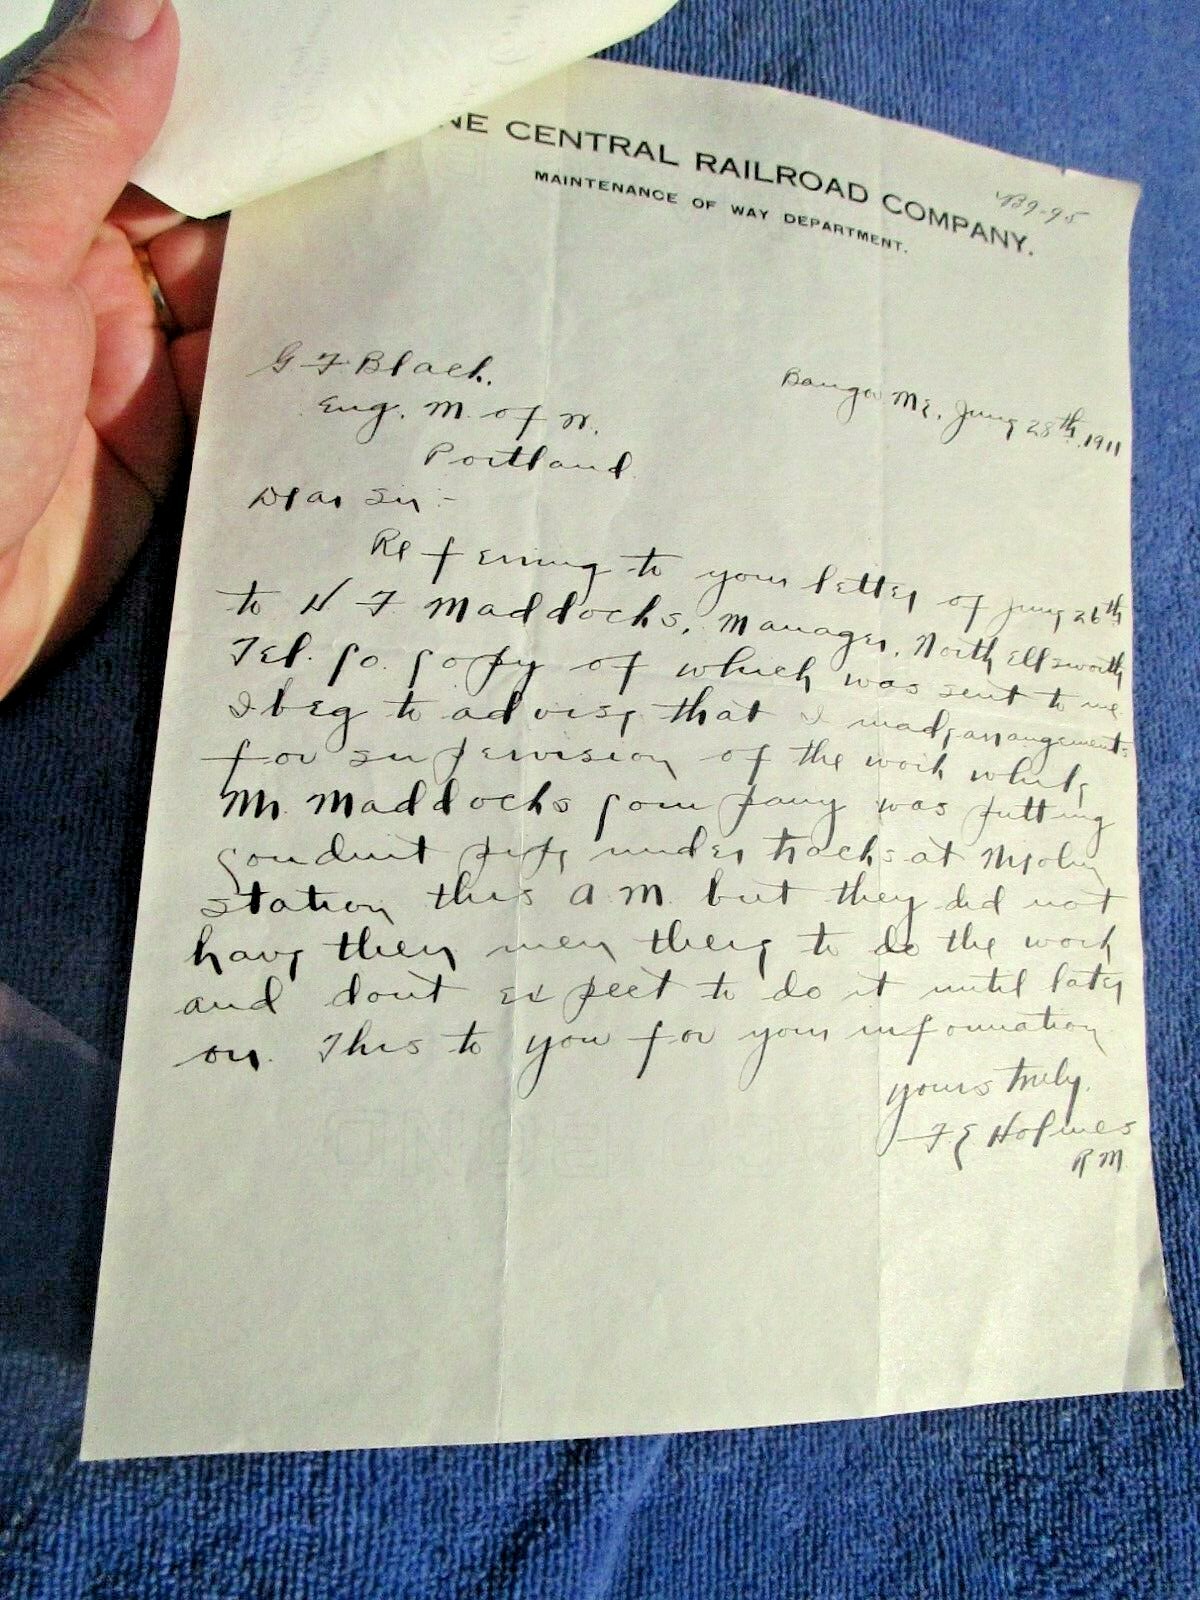 NE CENTRAL RAILROAD COMPANY.
MAINTENANCE OF WAY DEPARTMENT.
439-95
G F Black.
Bangor ME. June 28th 1911
Eng. M. of W.
Portland.
Dear Sir:-
Referring to your letter of June 26th
to H F Maddocks, Manager, North Ellsworth
Tel. Co. Copy of which was sent to me
I beg to advise that I made arrangements
for supervision of the work while
Mr. Maddocks Company was putting
Conduit pipe under tracks at Nicolin
station this A.M. but they did not
have their men there to do the work
and dont expect to do it until later
on. This to you for your information
yours truly.
F E Holmes
R M
BOND